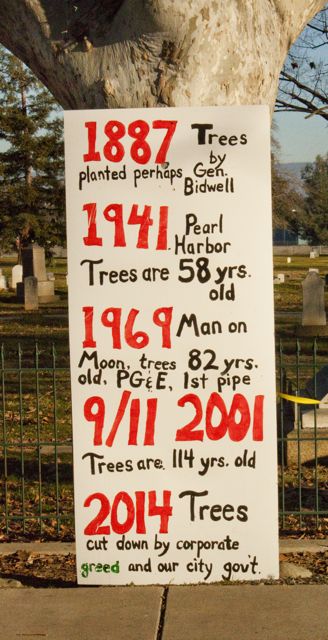 1887 Trees
by
planted perhaps Gen.
Bidwell
1941 Pearl
Harbor
Trees are 58 yrs.
old
1969 Man on
Moon, trees 82 yrs.
old. PG&E, 1st pipe
9/11 2001
Trees are 114 yrs. old
2014 Trees
cut down by corporate
greed and our city gov't.